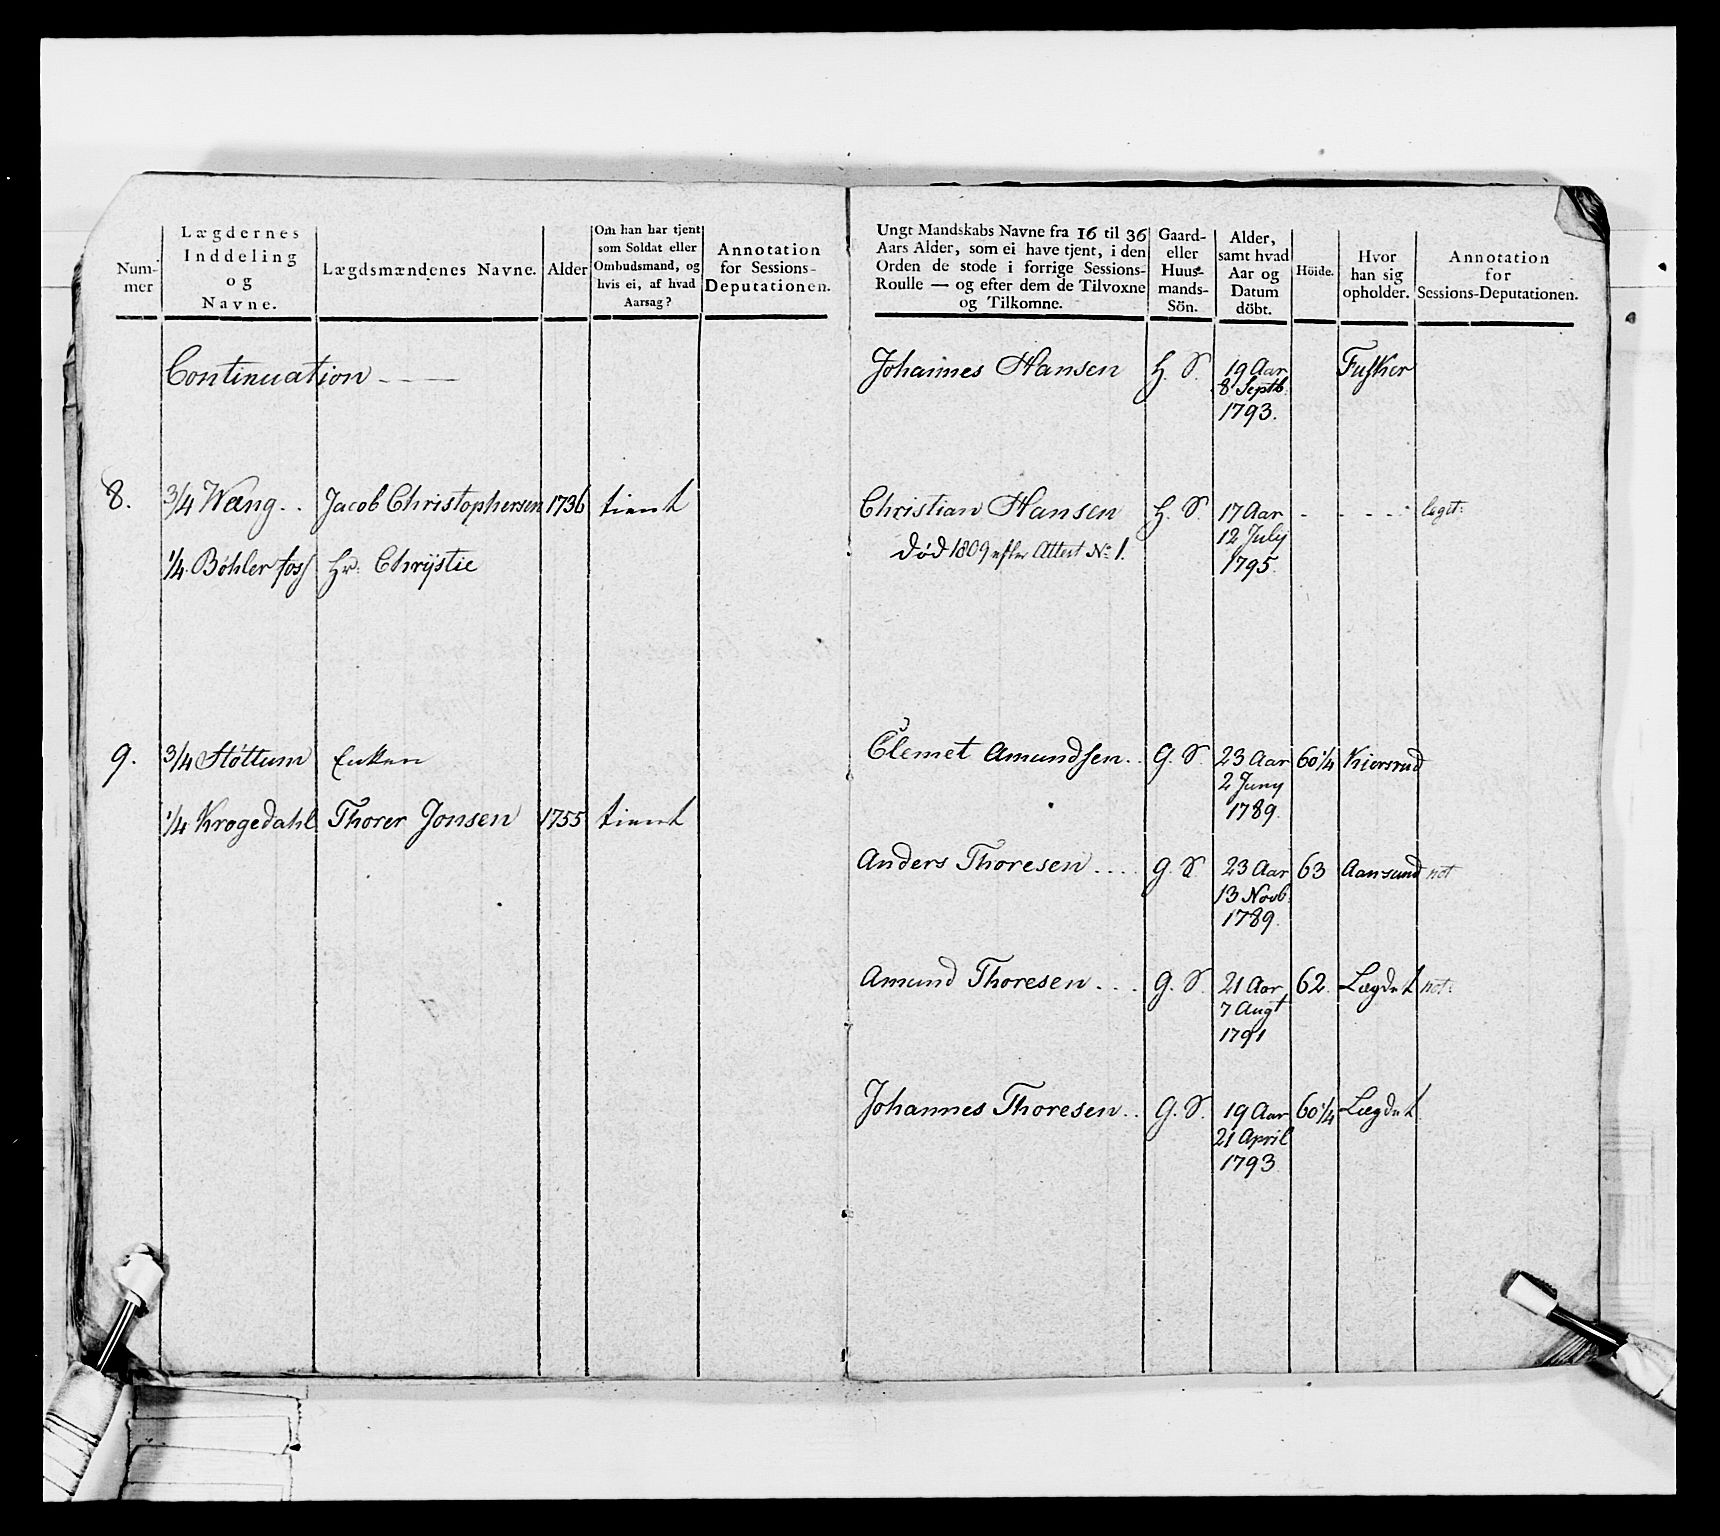 Num-
mer
Lægdernes
Inddeling
og
Navne.
Lægdsmændenes Navne.
Alder
Om han har tjent
som Soldat eller
Ombudsmand, og
hvis ei, af hvad
Aarsag?
Annotation
for Sessions-
Deputationen.
Continuation
8. 3/4 Wæng.. Jacob Christophersen 1736 tient
1/4 Bøhler foss Hr. Chrÿstie
9. 3/4 Støttum Enken
1/4 Krogedahl Thorer Jonsen 1755 tient
Ungt Mandskabs Navne fra 16 til 36
Aars Alder, som ei have tjent, i den
Orden de stode i forrige Sessions-
Roulle — og efter dem de Tilvoxne
og Tilkomne.
Gaard-
eller
Huus-
mands-
Sön.
Alder,
samt hvad
Aar og
Datum
döbt.
Höide.
Hvor
han sig
opholder.
Annotation
for
Sessions-Deputationen.
Johannes Hansen H. S. 19 Aar
8 Septb.
1793.
Christian Hansen H. S. 17 Aar - - - -
død 1809 efter Attest No 1. 12 July
1795.
Clemet Amundsen.. G. S. 23 Aar 60 1/4 Kiersrud
2 Juny
1789.
Anders Thoresen.... G. S. 23 Aar 63 Aansund not
13 Novb.
1789.
Amund Thoresen... G. S. 21 Aar 62. Lægdet not:
7 Augt
1791
Johannes Thoresen.. G. S. 19 Aar 60 1/4 Lægdet
21 April
1793